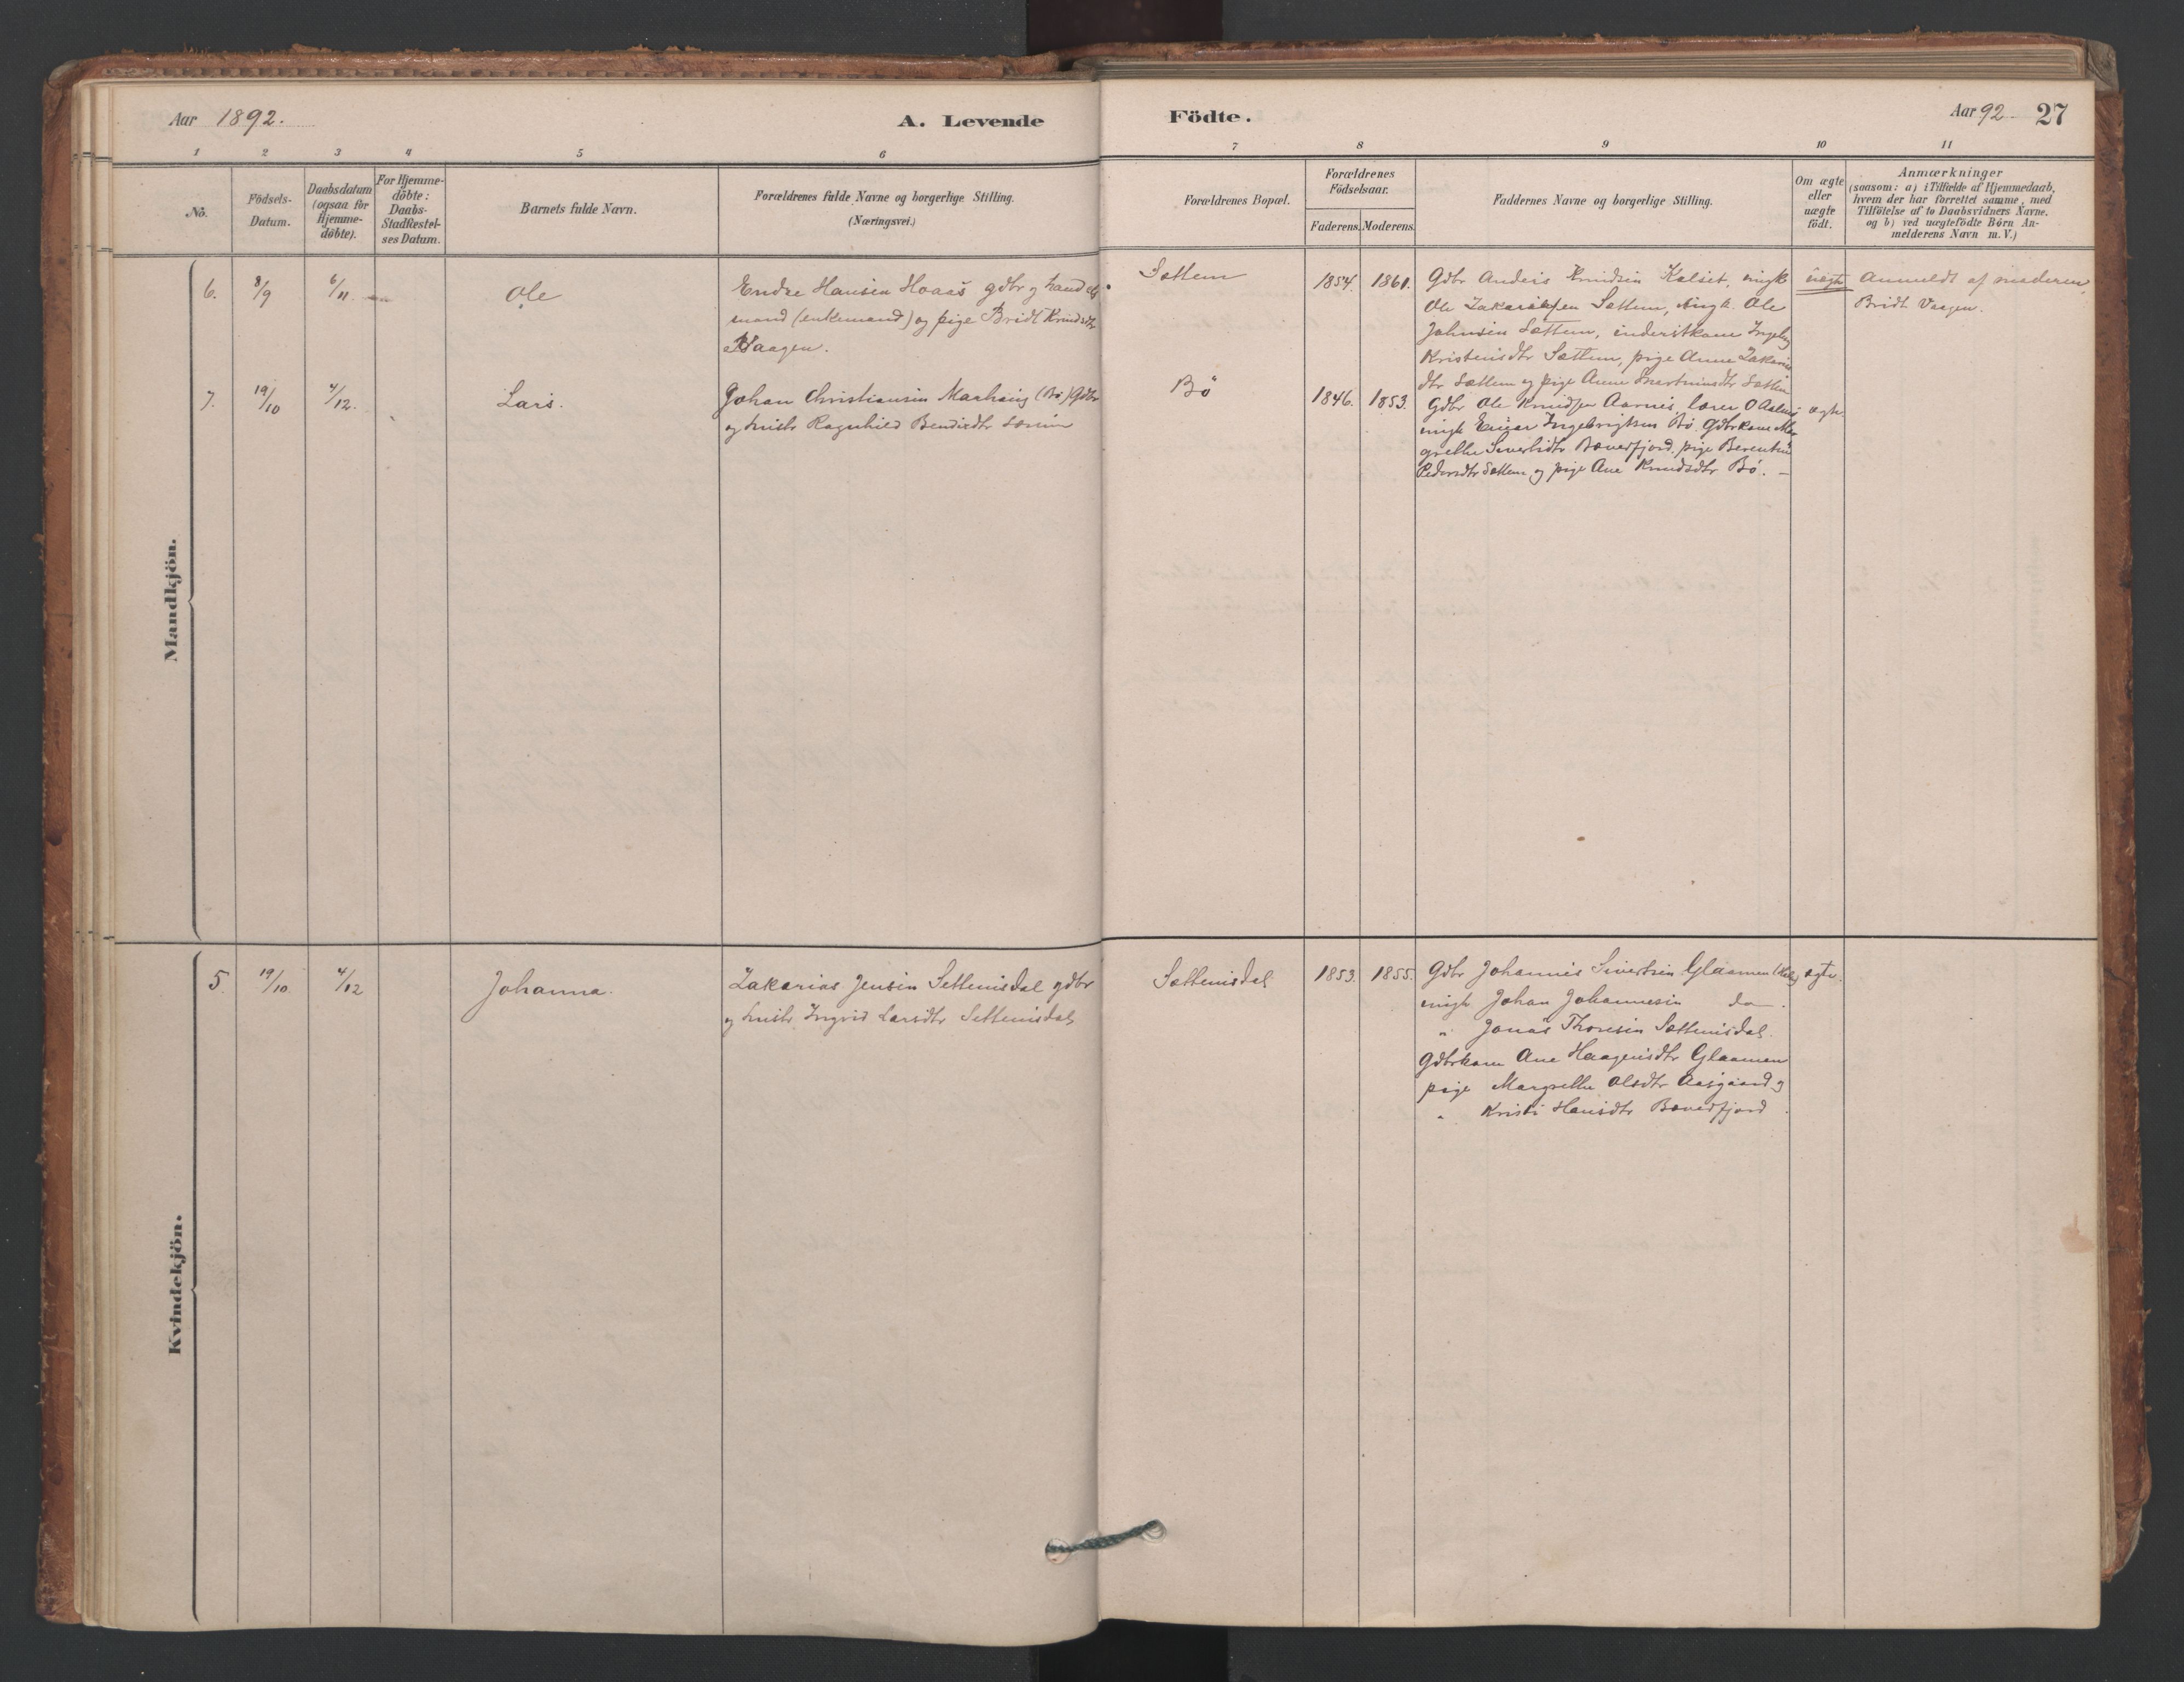 Aar 1892.
A. Levende
Födte.
Aar 92 27
1 2 3 4 5 6 7 8 9 10 11
Nö.
Födsels-
Datum.
Daabsdatum
(ogsaa for
Hjemme-
döbte).
For Hjemme-
döbte:
Daabs-
Stadfæstel-
ses Datum.
Barnets fulde Navn.
Forældrenes fulde Navne og borgerlige Stilling.
(Næringsvei.)
Forældrenes Bopæl.
Forældrenes
Födselsaar.
Faderens. Moderens.
Faddernes Navne og borgerlige Stilling.
Om ægte
eller
uægte
födt.
Anmærkninger
(saasom: a) i Tilfælde af Hjemmedaab,
hvem der har forrettet samme, med
Tilföielse af to Daabsvidners Navne.
og b) ved uægtefödte Börn An-
melderens Navn m.V.)
Mandkjön.
6. 8/9 6/11
Ole
Endre Hansen Hoaas gdbr og hand
mand (enkemand) og pige Bridt Knudsdtr
Vaagen.
Sættem
1854. 1861.
Gdbr Anders Knudsen Kalset, ungk
Ole Zakariasen Sættem, Ungk. Ole
Johnsen Sættem, inderstkone Ingeborg
Kristensdtr Sættem, pige Anne Zakarias
dtr Sættem og pige Anne Sættem
uægte
Anmeldt af moderen,
Bridt Vaagen.
7. 19/10 4/12.
Lars.
Johan Christiansen Marhaug (Bö) Gdbr
og hustr Ragnhild Bendixdtr
Bö
1846. 1853.
Gdbr Ole Knudsen Aarnes, lærer O Aalmo
ungk Einar Ingebrigtsen Bö. Gdbrkone Mar
grethe Sivertsdtr Bævefjord, pige Berenthe
Pedersdtr Sættem og pige Ane Knudsdtr Bö. -
ægte
Kvindekjön.
5. 19/10. 4/12
Johanna.
Zakarias Jensen Settemsdal gdbr
og hustr. Ingrid Larsdtr Settemsdal
Sættemsdal
1853. 1855.
Gdbr Johannes Sivertsen Glaamen
ungk Johan Johannesen do.
" Jonas Thoresen Sættemsdal.
Gdbrkone Ane Haagensdtr Glaamen
pige Margrethe Olsdtr Aasgaard og
" Kristi Hansdtr Bævefjord
ægte.